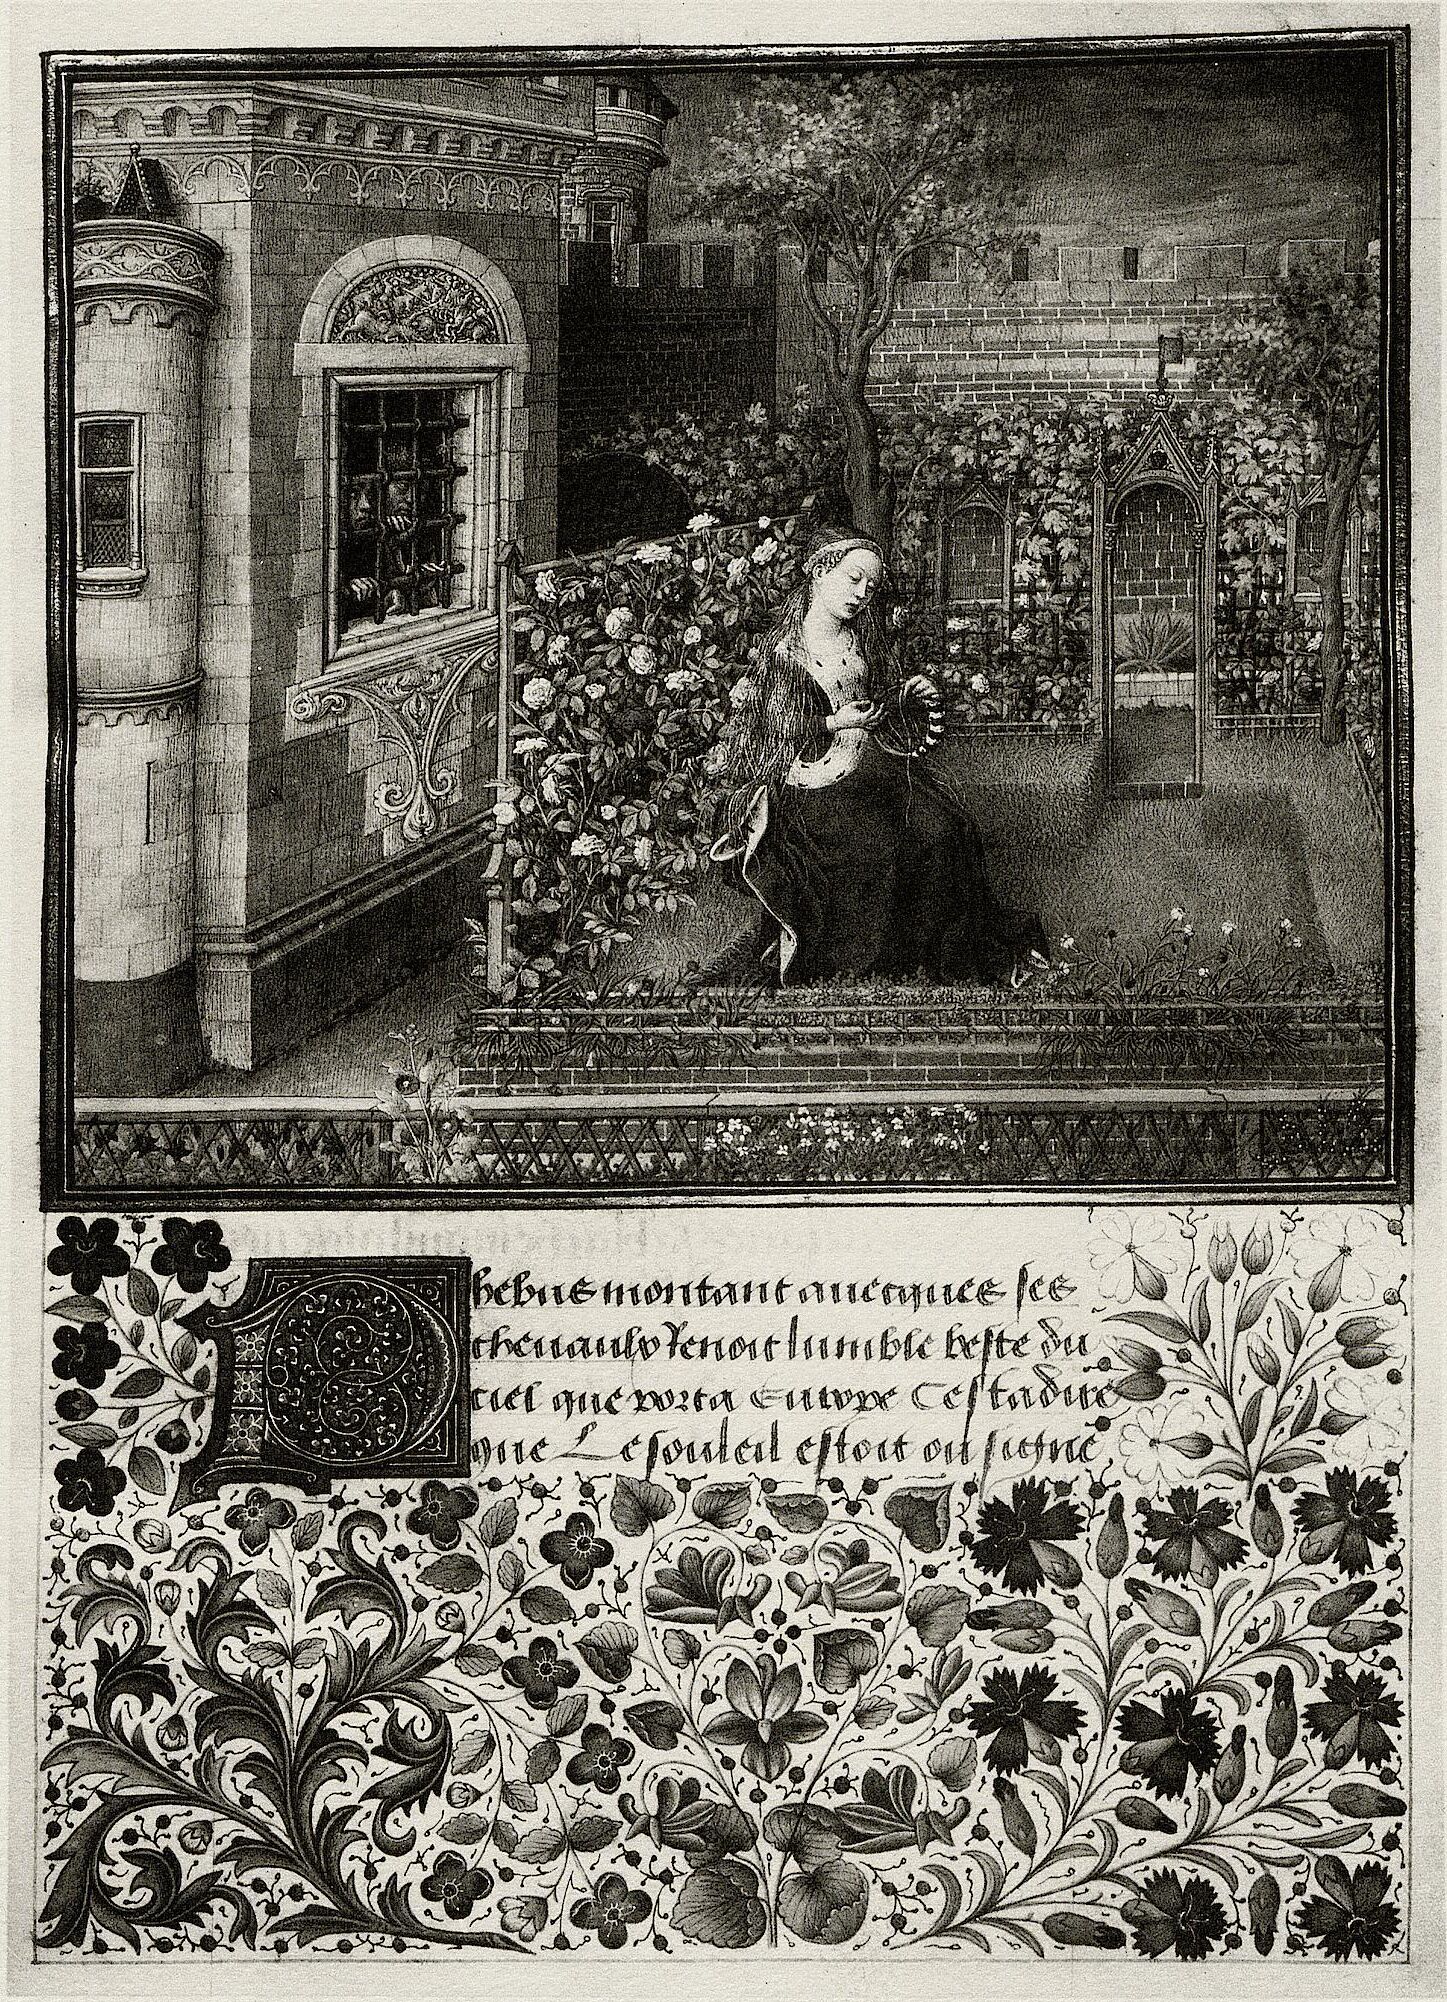 Phebus montant auecques ses
cheuaulx Tenoit lumble beste du
ciel que porta Europe Cestadire
que Le souleil estoit ou signe